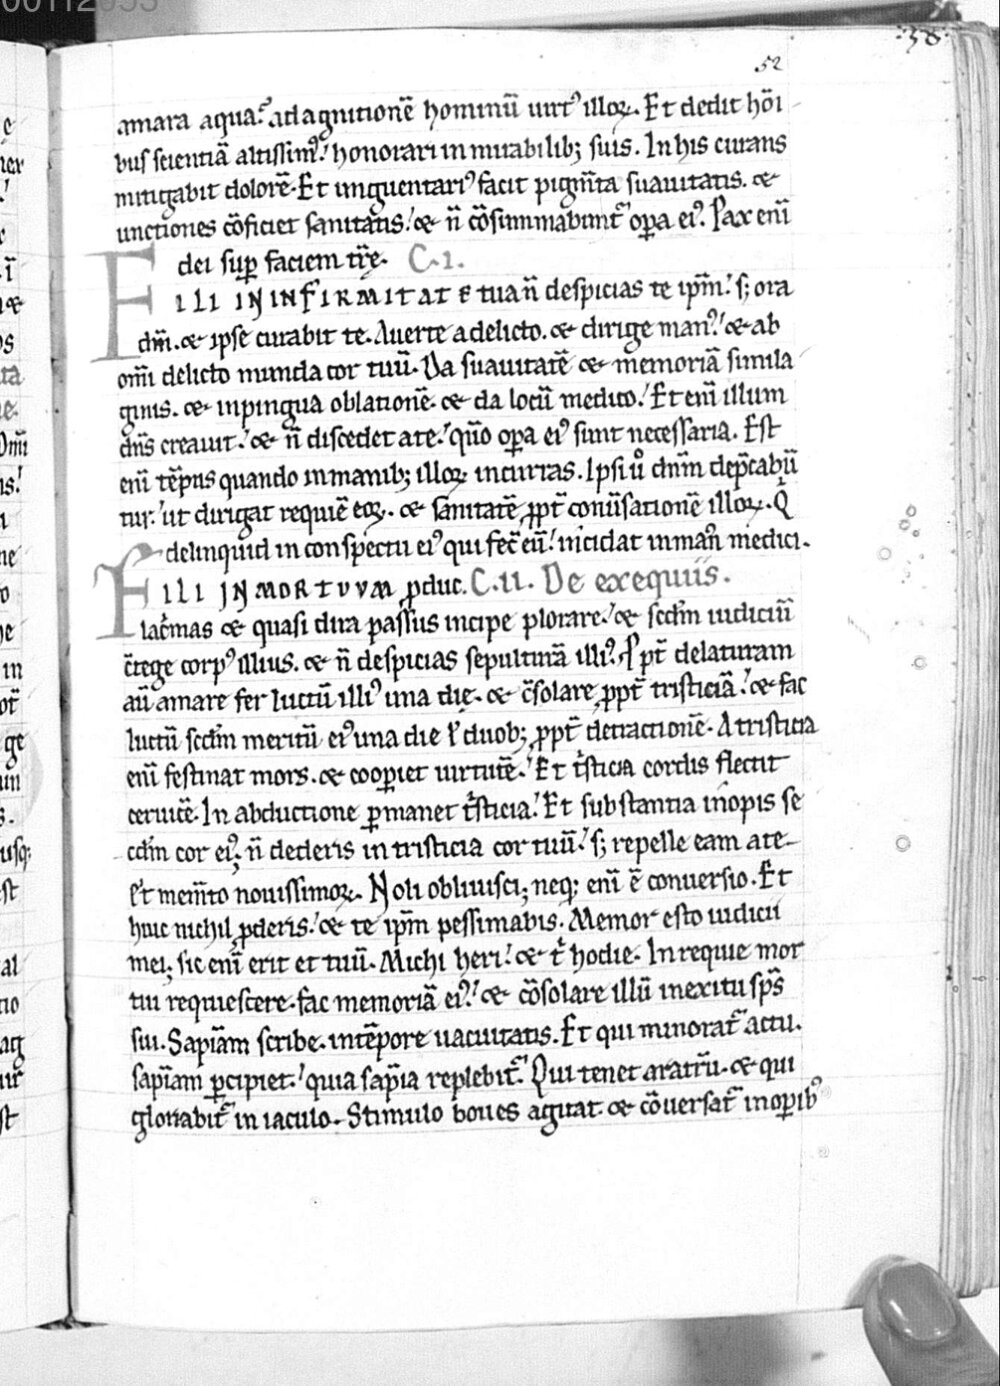 00112053
:38:
52
amara aqua? ad agnitionē hominū uirt᾽ illoꝝ. Et dedit hōi
bus scientiā altissim᾽! honorari in mirabilib; suis. In his curans
mitigabit dolorē. Et unguentari᾽ facit pigm̄ta suauitatis. &
unctiones c̄oficiet sanitatis! & n̄ c̄osummabunt᷑ oꝑa ei᾽. Pax eni
dei suꝑ faciem tr̄ę. C. I.
FILI IN INFIRMITATE tua n̄ despicias te ip̄m! s; ora
dm̄. & ipse curabit te. Auerte a delicto. & dirige man᾽! & ab
om̄i delicto munda cor tuū. Da suauitatē & memoriā simila
ginis. & inpingua oblationē. & da locū medico! Et eni illum
dn̄s creauit! & n̄ discedet a te! qūo oꝑa ei᾽ sunt necessaria. Est
eni tēpus quando in manib; illoꝝ incurras. Ipsi uͦ dnm̄ dep̄cabū
tur! ut dirigat requiē eoꝝ. & sanitatē ꝓpt̄ conūsationē illoꝝ. Qͥ
delinquid in conspectu ei᾽ qui fec̄ eū! incidat in man᾽ medici.
FILI IN MORTVVM ꝓduc. C. II. De exequiis.
lac̄mas & quasi dira passus incipe plorare! & scd̄m iudiciū
c̄tege corp᾽ illius. & n̄ despicias sepulturā illi᾽. Ꝓpt̄ delaturam
aū amare fer luctū illi᾽ una die. & c̄solare ꝓpt̄ tristiciā! & fac
luctū scd̄m meritū ei᾽ una die ł duob; ꝓpt̄ detractionē. A tristicia
eni festinat mors. & cooꝑiet uirtutē! Et tͥsticia cordis flectit
ceruicē. In abductione ꝑmanet tͥsticia! Et substantia inopis se
cd̄m cor ei᾽; n̄ dederis in tristicia cor tuū! s; repelle eam a te.
Et mem̄to nouissimoꝝ. Noli obliuisci; neq; eni ē conuersio. Et
huic nichil ꝓderis! & te ip̄m pessimabis. Memor esto iudicii
mei; sic eni erit et tuū. Michi heri! & tͥ hodie. In requie mor
tui requiescere fac memoriā ei᾽! & c̄osolare illū in exitu sp̄s
sui. Sapīam scribe in tēpore uacuitatis. Et qui minorat᷑ actu.
sapīam ꝑcipiet! quia sapīa replebit᷑. Qui tenet aratrū. & qui
gloriabit᷑ in iaculo. Stimulo boues agitat. & c̄ouersat᷑ in oꝑib᾽